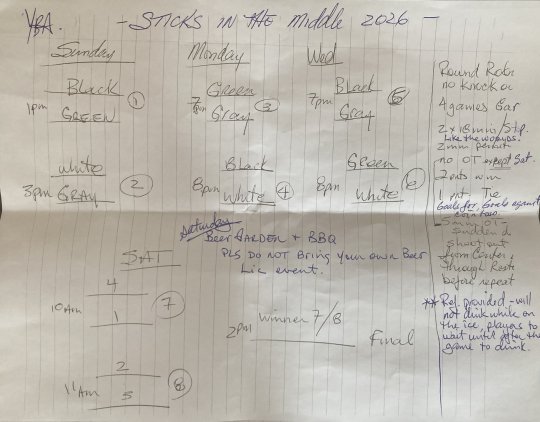 YBA. - STICKS IN THE MIDDLE 2026 -
Sunday
1pm
Black
GREEN
1
3pm
white
GRAY
2
Monday
7pm
Green
Gray
3
8pm
Black
White
4
Wed
7pm
Black
Gray
8pm
Green
White
6
Saturday
Beer GARDEN + BBQ
PLS DO NOT Bring your own Beer
Lic event.
SAT
10am
4
1
7
11am
2
3
8
2pm
winner 7/8
Final
Round Rob
no knock ou
4 games Gar
2 x 18 min/Stp.
Like the
2 min
no OT except Sat.
2 pnts win
1 pnt Tie
Goals for, Goals against
Coin toss
5 min OT -
Sudden d
shoot out
from Center
through
before repeat
** Ref. provided - will
not drink while on
the ice, players to
wait until after the
game to drink.